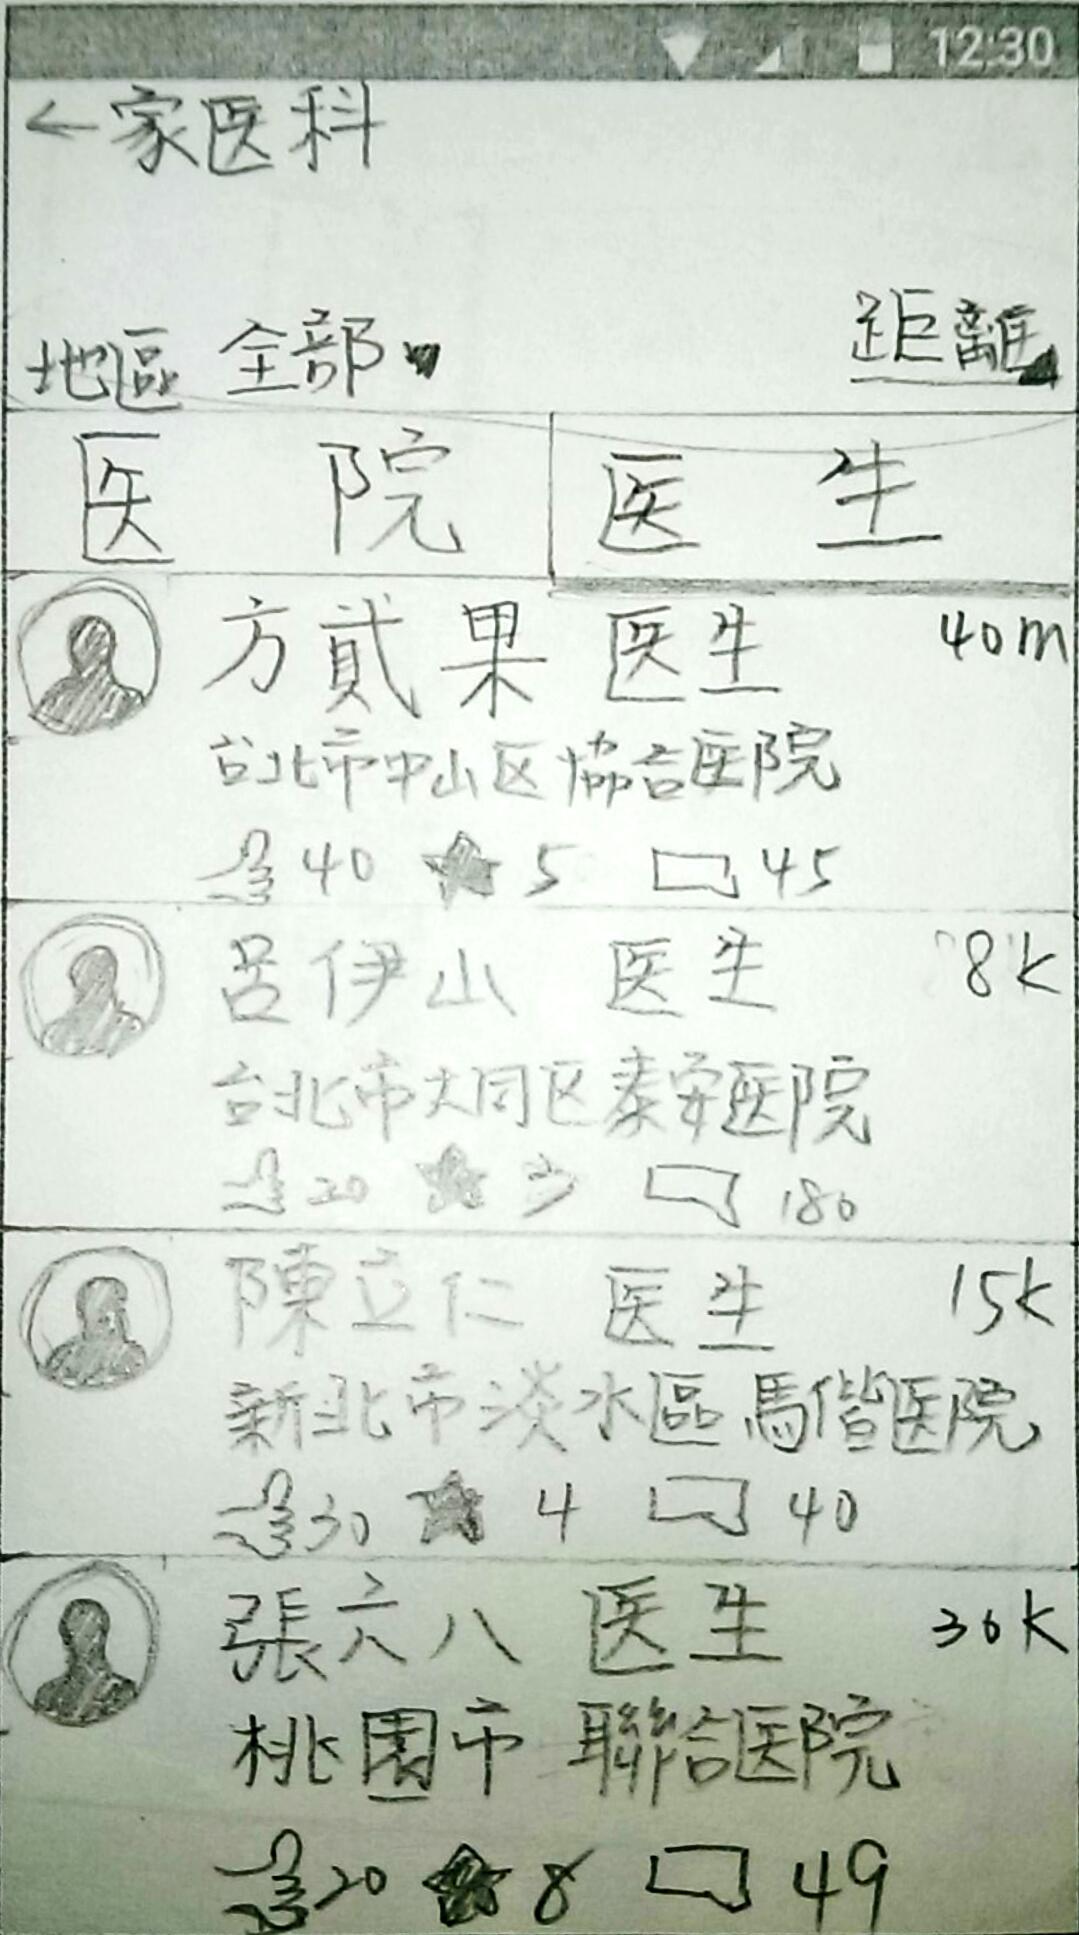 12:30
←家医科
地區 全部 距離
医院 医生
方貳果 医生 40m
台北市中山区協合医院
40 5 45
呂伊山 医生 8k
台北市大同区泰安医院
20 3 180
陳立仁 医生 15k
新北市淡水區馬偕医院
30 4 40
張六八 医生 30k
桃園市 聯合医院
20 8 49